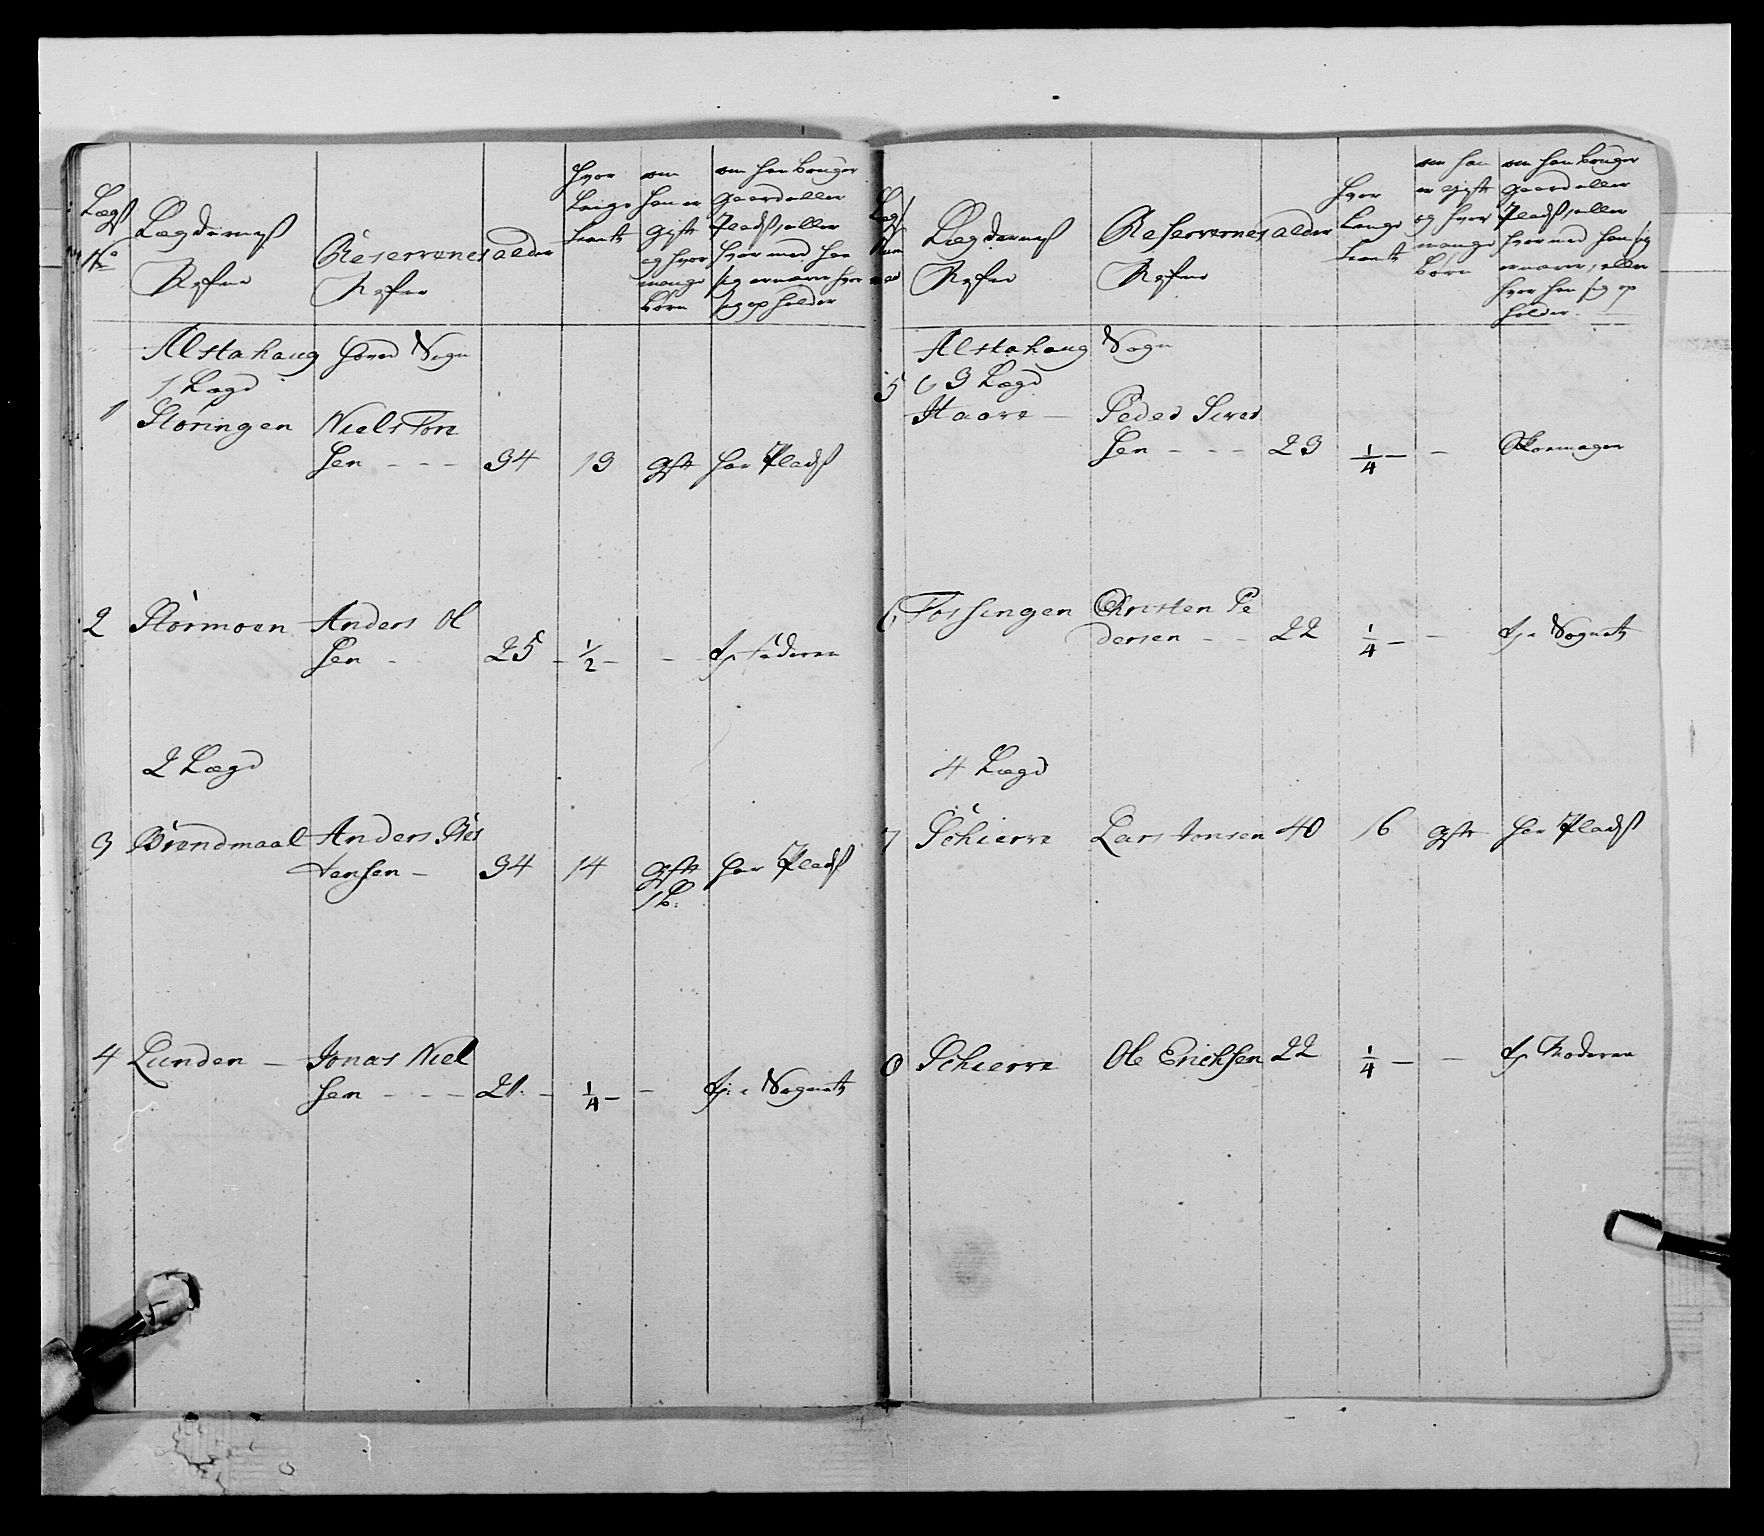 Lægs No
Lægdernes Nafne
Reservenes Nafne
alder
hvor længe tient
om han er gift og hvor mange børn
om han bruger gaard eller Plads, eller hvor med han sig ernærer hvor sig opholder
Alstahoug Hoved Sogn
1 Lægd
1 Storingen Niels Tore
sen - - - 34 13 gift har Plads
2 Stormoen Anders Ol
sen - 25 - 1/2 - - - tj. Faderen
2 Lægd
3 Brændmaal Anders
tensen - 34 14 gift har Plads
1 B:
4 Lunden - Jonas Niel
sen - - - 21. - 1/4 - - tj. i Sognet
Lægdernes Nafne
Reservernes Nafne
alder
hvor længe tient
om han er gift og hvor mange børn
om han bruger gaard eller Plads, eller hvor med han sig ernærer, eller hvor han sig op holder.
Alstahoug Sogn
3 Lægd
5 Haare - Peder Siver
sen - - - 23 1/4 - - Skoemager
6 Forsingen Christen Pe
dersen - - 22 1/4 - - tj. i Sognet
4 Lægd
7 Schierre Lars 40 16 gift har Plads
8 Schierre Ole Erichsen 22 1/4 - - tj. Moderen